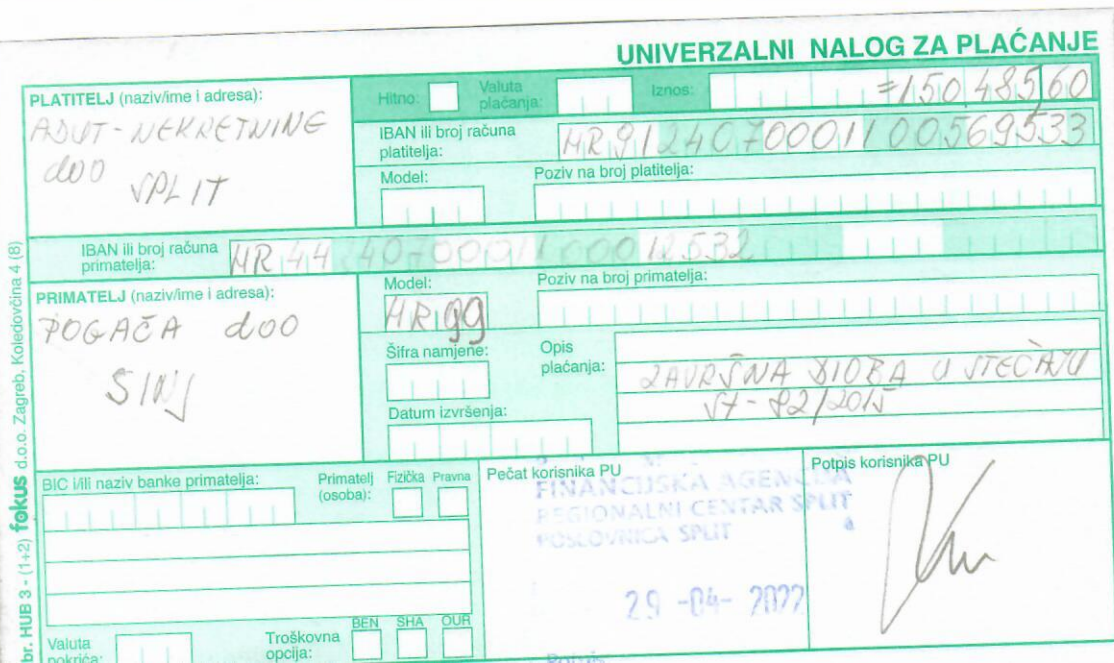 UNIVERZALNI NALOG ZA PLAĆANJE
PLATITELJ (naziv/ime i adresa):
ADUT-NEKRETNINE
doo
SPLIT
Hitno:
Valuta plaćanja:
Iznos:
=150.485,60
IBAN ili broj računa platitelja:
HR9124070001100569533
Model:
Poziv na broj platitelja:
IBAN ili broj računa primatelja:
HR4424070001100012532
PRIMATELJ (naziv/ime i adresa):
POGAČA doo
SINJ
Model:
HR99
Poziv na broj primatelja:
Šifra namjene:
Opis plaćanja:
ZAVRŠNA DIOBA U STEČAJU
St-82/2015
Datum izvršenja:
BIC i/ili naziv banke primatelja:
Primatelj (osoba):
Fizička
Pravna
Pečat korisnika PU
FINANCIJSKA AGENCIJA
REGIONALNI CENTAR SPLIT
POSLOVNICA SPLIT
29 -04- 2022
Potpis
Potpis korisnika PU
Valuta pokrića:
Troškovna opcija:
BEN
SHA
OUR
br. HUB 3 - (1+2) fokus d.o.o. Zagreb, Koledovčina 4 (8)